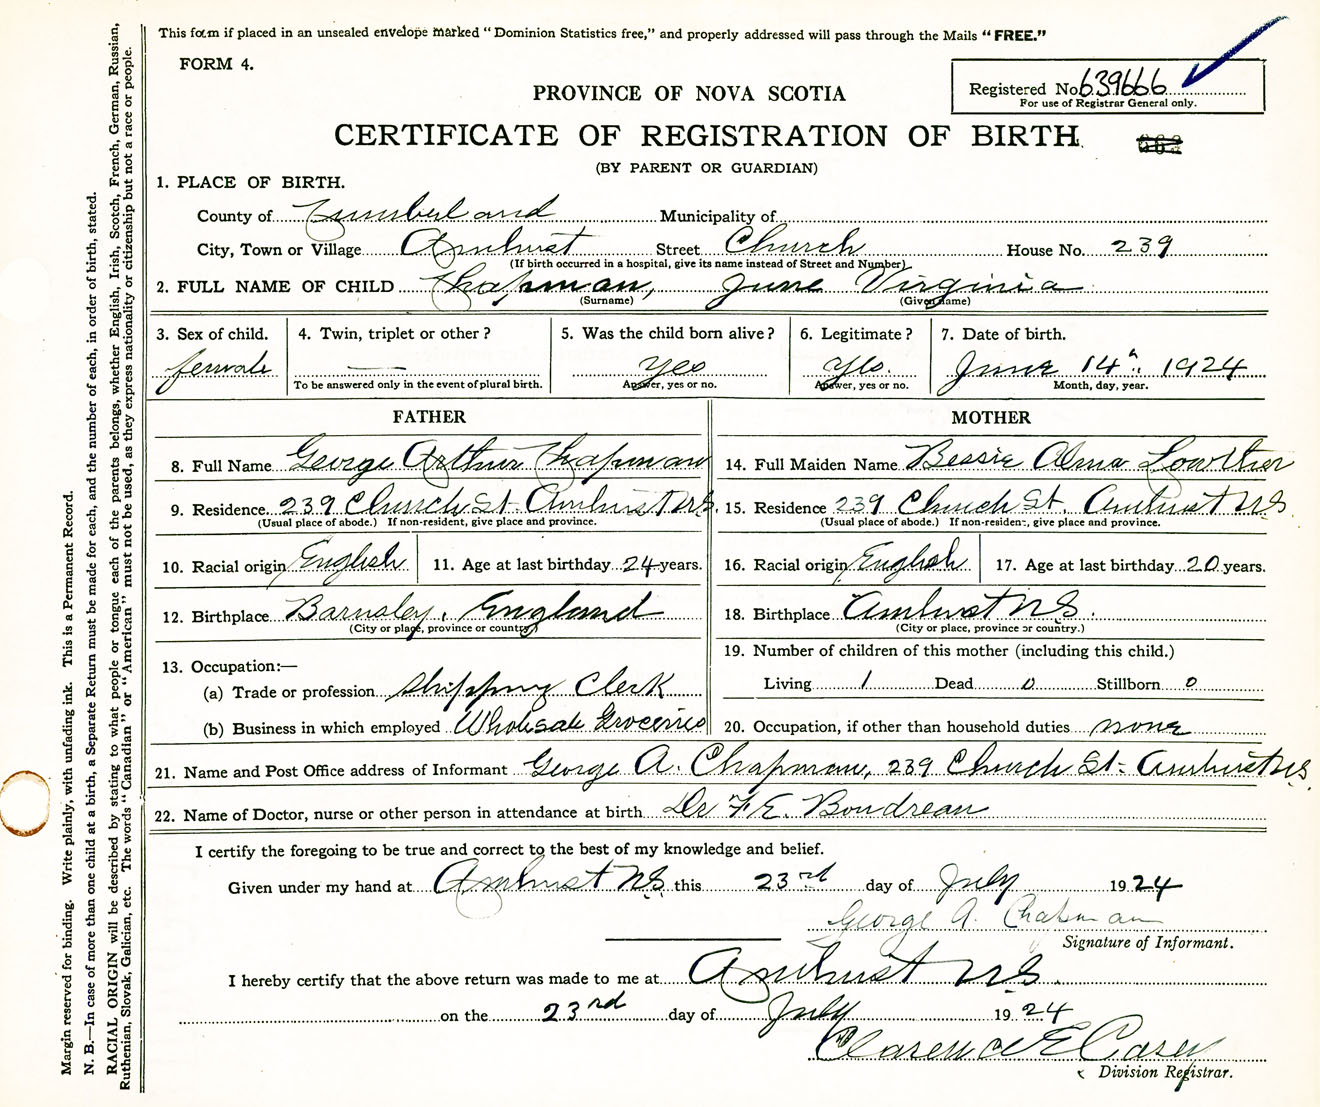 This form if placed in an unsealed envelope marked "Dominion Statistics free," and properly addressed will pass through the Mails "FREE."
FORM 4.
Registered No. 639666
For use of Registrar General only.
PROVINCE OF NOVA SCOTIA
CERTIFICATE OF REGISTRATION OF BIRTH
(BY PARENT OR GUARDIAN)
1. PLACE OF BIRTH.
County of Cumberland Municipality of
City, Town or Village Amherst Street Church House No. 239
(If birth occurred in a hospital, give its name instead of Street and Number)
2. FULL NAME OF CHILD Chapman, June Virginia
(Surname) (Given name)
3. Sex of child. 4. Twin, triplet or other? 5. Was the child born alive? 6. Legitimate? 7. Date of birth.
female — yes yes. June 14th. 1924
To be answered only in the event of plural birth. Answer, yes or no. Answer, yes or no. Month, day, year.
FATHER MOTHER
8. Full Name George Arthur Chapman 14. Full Maiden Name Bessie Alma Lowther
9. Residence 239 Church St. Amherst N.S. 15. Residence 239 Church St. Amherst N.S.
(Usual place of abode.) If non-resident, give place and province. (Usual place of abode.) If non-resident, give place and province.
10. Racial origin English 11. Age at last birthday 24 years. 16. Racial origin English 17. Age at last birthday 20 years.
12. Birthplace Barnsley, England 18. Birthplace Amherst N.S.
(City or place, province or country) (City or place, province or country.)
13. Occupation:— 19. Number of children of this mother (including this child.)
(a) Trade or profession Shipping Clerk Living 1 Dead 0 Stillborn 0
(b) Business in which employed Wholesale Groceries 20. Occupation, if other than household duties none
21. Name and Post Office address of Informant George A. Chapman, 239 Church St- Amherst N.S.
22. Name of Doctor, nurse or other person in attendance at birth Dr F.E. Boudreau
I certify the foregoing to be true and correct to the best of my knowledge and belief.
Given under my hand at Amherst N.S. this 23rd day of July 1924
George A. Chapman
Signature of Informant.
I hereby certify that the above return was made to me at Amherst N.S.
on the 23rd day of July 1924
Clarence E Casey
Division Registrar.
Margin reserved for binding. Write plainly, with unfading ink. This is a Permanent Record.
N. B.—In case of more than one child at a birth, a Separate Return must be made for each, and the number of each, in order of birth, stated.
RACIAL ORIGIN will be described by stating to what people or tongue each of the parents belongs, whether English, Irish, Scotch, French, German, Russian,
Ruthenian, Slovak, Galician, etc. The words "Canadian" or "American" must not be used, as they express nationality or citizenship but not a race or people.